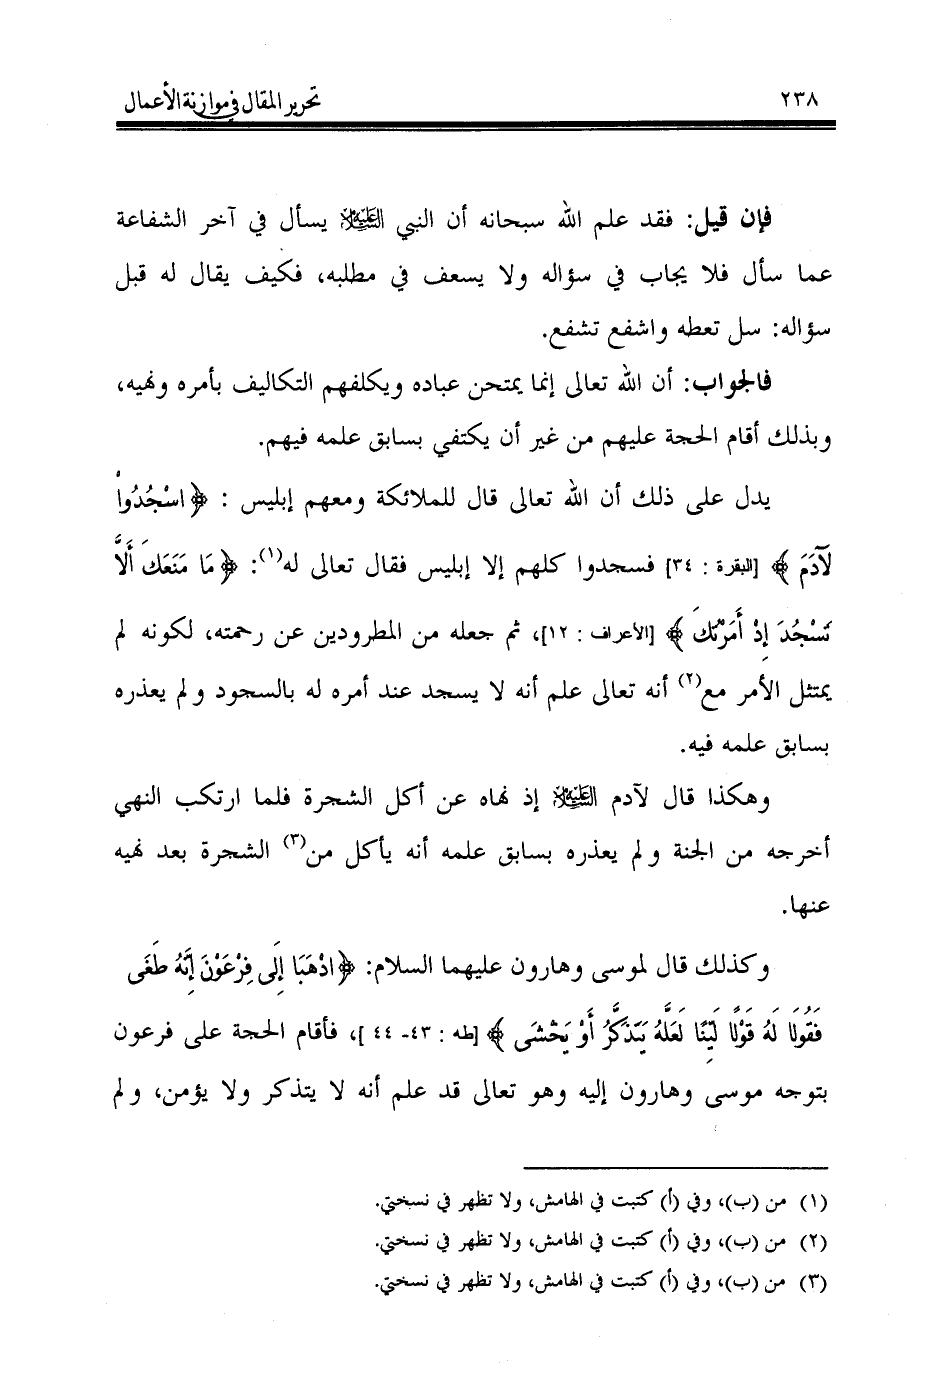 ٢٣٨
تحرير المقال في موازنة الأعمال
فإن قيل: فقد علم الله سبحانه أن النبي العَلَيْهِ السَّلام يسأل في آخر الشفاعة
عما سأل فلا يجاب في سؤاله ولا يسعف في مطلبه، فكيف يقال له قبل
سؤاله: سل تعطه واشفع تشفع.
فالجواب: أن الله تعالى إنما يمتحن عباده ويكلفهم التكاليف بأمره ونهيه،
وبذلك أقام الحجة عليهم من غير أن يكتفي بسابق علمه فيهم.
يدل على ذلك أن الله تعالى قال للملائكة ومعهم إبليس : ﴿ اسْجُدُواْ
لآدَمَ ﴾ [البقرة : ٣٤] فسجدوا كلهم إلا إبليس فقال تعالى له(١): ﴿ مَا مَنَعَكَ أَلاَّ
تَسْجُدَ إِذْ أَمَرْتُكَ ﴾ [الأعراف : ١٢]، ثم جعله من المطرودين عن رحمته، لكونه لم
يمتثل الأمر مع(٢) أنه تعالى علم أنه لا يسجد عند أمره له بالسجود ولم يعذره
بسابق علمه فيه.
وهكذا قال لآدم العَلَيْهِ السَّلام إذ نهاه عن أكل الشجرة فلما ارتكب النهي
أخرجه من الجنة ولم يعذره بسابق علمه أنه يأكل من(٣) الشجرة بعد نهيه
عنها.
وكذلك قال لموسى وهارون عليهما السلام: ﴿ اذْهَبَا إِلَى فِرْعَوْنَ إِنَّهُ طَغَى
فَقُولا لَهُ قَوْلًا لَيِّنًا لَعَلَّهُ يَتَذَكَّرُ أَوْ يَخْشَى ﴾ [طه : ٤٣- ٤٤ ]، فأقام الحجة على فرعون
بتوجه موسى وهارون إليه وهو تعالى قد علم أنه لا يتذكر ولا يؤمن، ولم
(١) من (ب)، وفي (أ) كتبت في الهامش، ولا تظهر في نسختي.
(٢) من (ب)، وفي (أ) كتبت في الهامش، ولا تظهر في نسختي.
(٣) من (ب)، وفي (أ) كتبت في الهامش، ولا تظهر في نسختي.